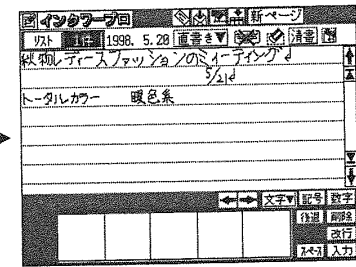 インクワープロ 新ページ
リスト 1件 1998. 5.28 直書き▼ 清書
秋物レディースファッションのミーティング
5/21
トータルカラー 暖色系
文字▼ 記号 数字
後退 削除
改行
スペース 入力